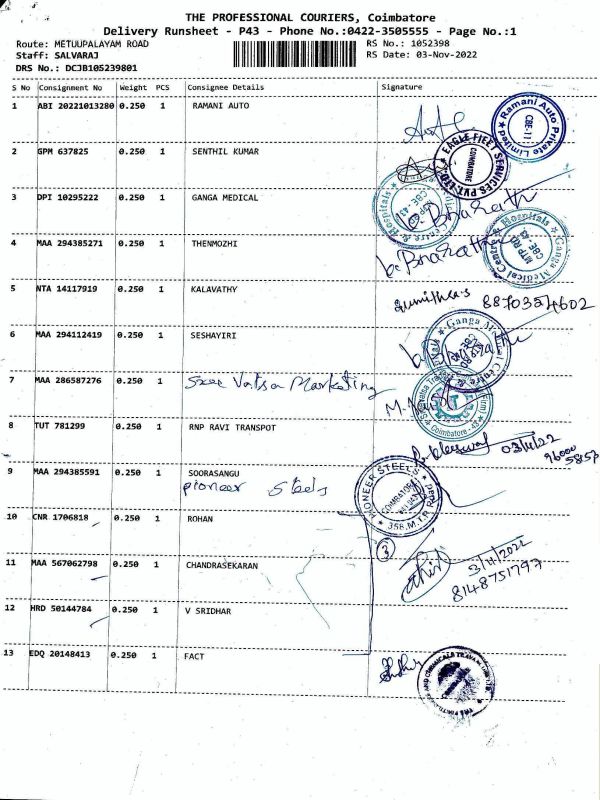 THE PROFESSIONAL COURIERS, Coimbatore
Delivery Runsheet - P43 - Phone No.:0422-3505555 - Page No.:1
Route: METUUPALAYAM ROAD RS No.: 1052398
Staff: SALVARAJ RS Date: 03-Nov-2022
DRS No.: DCJB105239801
S No Consignment No Weight PCS Consignee Details Signature
1 ABI 20221013280 0.250 1 RAMANI AUTO
Ramani Auto Private Limited CBE-11
2 GPM 637825 0.250 1 SENTHIL KUMAR
EAGLE FIELD SERVICES PVT.LTD. COIMBATORE
3 DPI 10295222 0.250 1 GANGA MEDICAL
Bharath
4 MAA 294385271 0.250 1 THENMOZHI
Bharath
Ganga Medical Centre & Hospitals MTP RD CBE-43
5 NTA 14117919 0.250 1 KALAVATHY
Sumithra.s 8870354602
6 MAA 294112419 0.250 1 SESHAYIRI
7 MAA 286587276 0.250 1 Sree Vatsa Marketing
Coimbatore
8 TUT 781299 0.250 1 RNP RAVI TRANSPOT
03/11/22
9 MAA 294385591 0.250 1 SOORASANGU
pioneer steels
PIONEER STEELS COIMBATORE 358, M.T.P. Road
10 CNR 1706818 0.250 1 ROHAN
3
11 MAA 567062798 0.250 1 CHANDRASEKARAN
3/11/2022
8148751797
12 HRD 50144784 0.250 1 V SRIDHAR
13 EDQ 20148413 0.250 1 FACT